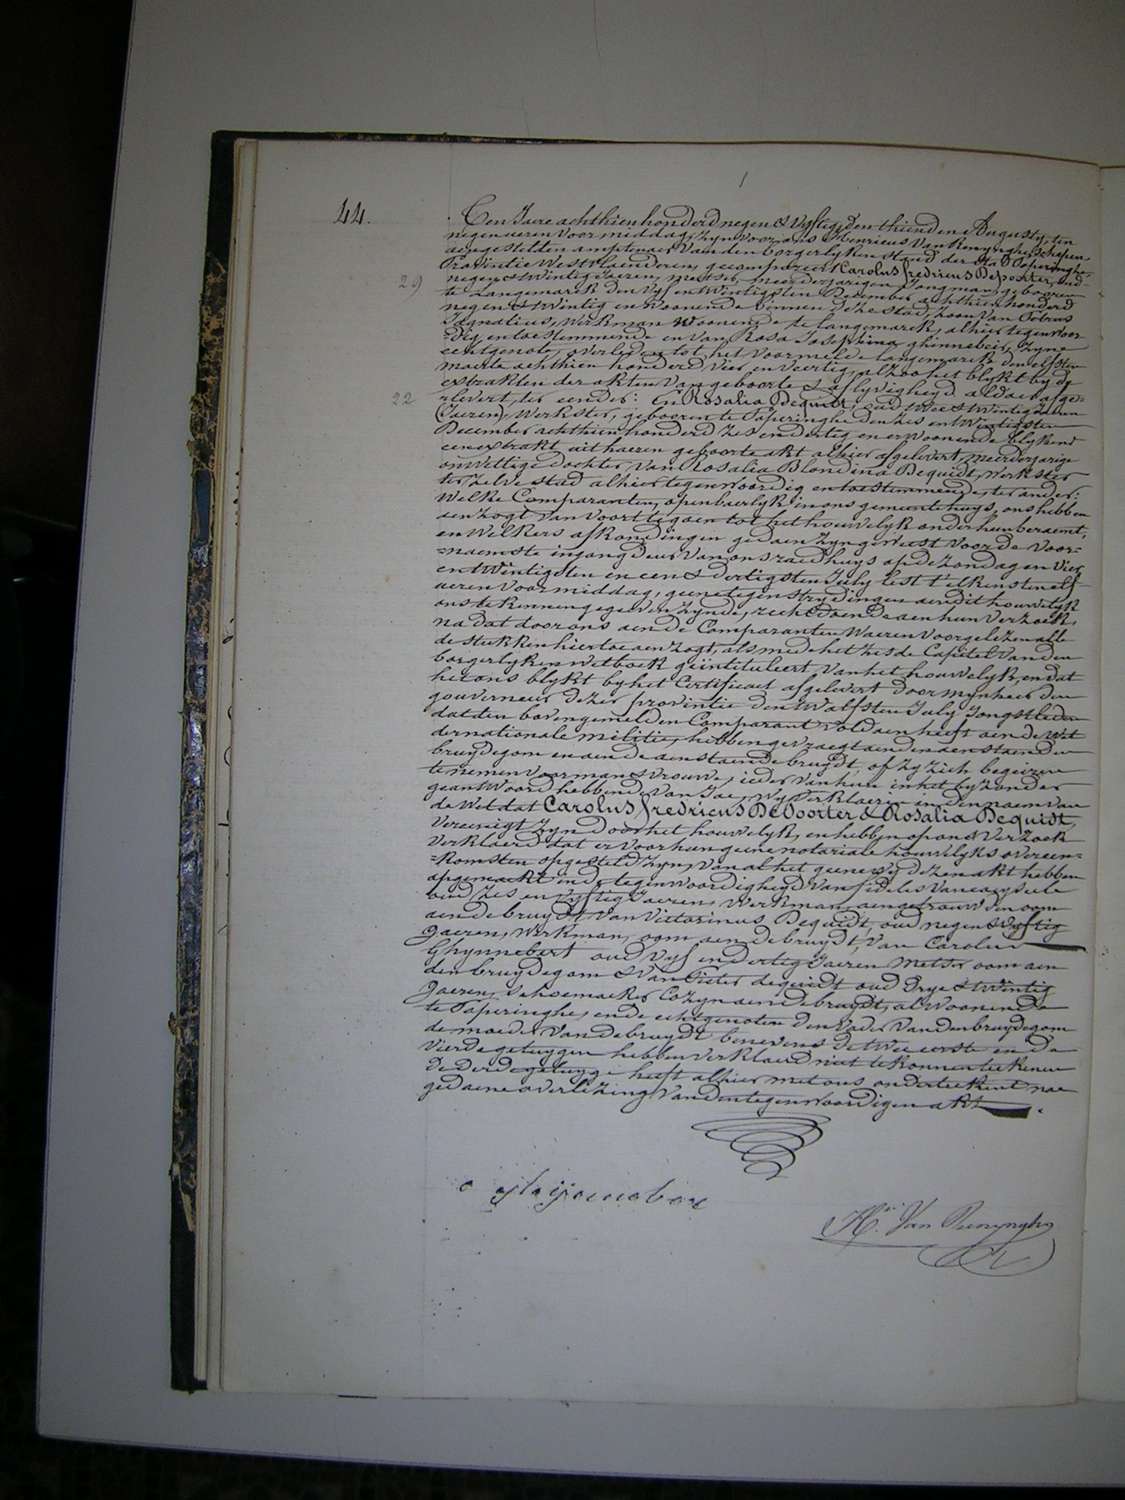 44.
Ten Jaere achthien honderd negen & Vyftig den thienden Augusty, ten
negen ueren voormiddag, Zyn voor ons Henricus Van Renynghe Schepen
aengestelden amptenaer Van den borgerlyken stand der stad Poperinghe
Provintie Westvlaenderen, gecompareert Carolus fredricus Devoorter, oud
29 negen & twintig jaeren, metser, meerderjarigen Jongman, geboren
te Langemarck den Vyf en twintigsten December achthien honderd
negen & twintig en woonende binnen deze stad, zoon van
Ignatius, Werkman Woonende te Langemarck, alhier tegenwoor-
=dig en toestemmende en van Rosa Josephina ghinnebeir, zyne
echtgenote, overleden tot het voormelde langemarck den elfsten
maerte achthien honderd Vier en veertig, alzoo het blykt by de
extrakten der akten van geboorte & aflyvigheyd aldaer afge-
22 =levert, ter eender: En Rosalia Dequidt, oud twee & twintig
Jaeren, Werkster, geboren te Poperinghe den zes en twintigsten
December achthien honderd zes en dertig en er woonende blykens
een extrakt uit haeren geboorte akt alhier afgelevert, meerderjarige
onwettige dochter van Rosalia Blondina Dequidt, werkster
ter zelve stad alhier tegenwoordig en toestemmende, ter ander:
Welke Comparanten, openbaerlyk in ons gemeentehuys, ons hebben
aenzogt van voort te gaen tot het houwelyk onder hun beraemt,
en Welkers afkondingen gedaen zyn geweest voor de voor-
=naemste ingang deur van ons raedhuys op de zondagen vier
en twintigsten en een & dertigsten July lest t'elkens ten elf
ueren voormiddag, geene tegenstrydingen aen dit houwelyk
ons te kennen gegeven zynde, recht doende aen hun verzoek,
na dat door ons aen de Comparanten waeren voorgelezen alle
de stukken hier toe aenzogt, als mede het zesde Capitel van den
borgerlyken wetboek geïntituleert van het houwelyk, en dat
het ons blykt by het Certificaet afgelevert door mynheer den
gouverneur dezer provintie den twalfsten July Jongstleden
dat den bovengemelden Comparant voldaen heeft aen de wet
der nationale militie, hebben gevraegt aen den aenstaenden
bruydegom en aen de aenstaende bruydt, of zy zich begeeren
te nemen voor man & vrouwe, ieder van hun in het byzonder
geantwoord hebbende van Jae, Wy Verklaeren in den naem van
de Wet dat Carolus fredricus Devoorter & Rosalia Dequidt,
Vereenigt zyn door het houwelyk, en hebben op ons verzoek
verklaerd dat er voor hun geene notariale houwelyks overeen-
=komsten opgesteld zyn, van al het geene wy dezen akt hebben
opgemaekt in de tegenwoordigheyd van fidelis
oud zes en vyftig Jaeren, Werkman, aengetrouwden oom
aen de bruydt, van Victorinus Dequidt, oud negen & vyftig
Jaeren, Werkman, oom aen de bruydt, van Carolus
Ghynnebert oud Vyf en dertig Jaeren metser oom aen
den bruydegom & van Pieter dequidt oud Drye & twintig
Jaeren, Schoemaeker Cozyn aen de bruydt, al woonende
te Poperinghe, en de echtgenoten den vader van den bruydegom
de moeder van de bruydt benevens de twee eerste en de
Vierde getuygen hebben verklaerd niet te konnen teekenen
De derde getuyge heeft alhier met ons onderteekent nae
gedaene overlezing van den tegenwoordigen akt.
Hri. Van Renynghe